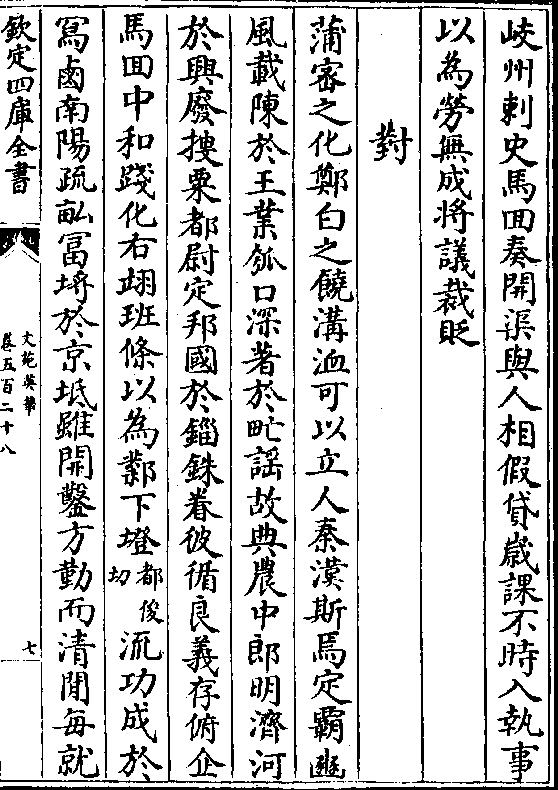 岐州刺史馬回奏開渠與人相假貸歲課不時入執事
以為勞無成將議裁貶
對
蒲密之化鄭白之饒溝洫可以立人秦漢斯焉定霸豳
風載陳於王業瓠口深著於甿謡故典農中郎明濟河
於興廢搜粟都尉定邦國於錙銖眷彼循良義存俯企
馬回中和踐化右翊班條以為鄴下墱都俊切流功成於
寫鹵南陽疏畎富埒於京坻雖開鑿方勤而清閒每就
欽定四庫全書
文苑英華
卷五百二十八
七